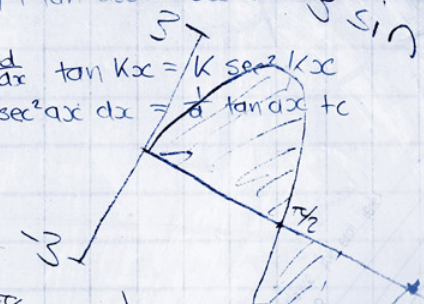 3 sin
3
d/dx tan Kx = K sec² Kx
sec²ax dx = 1/a tan ax + c
π/2
-3